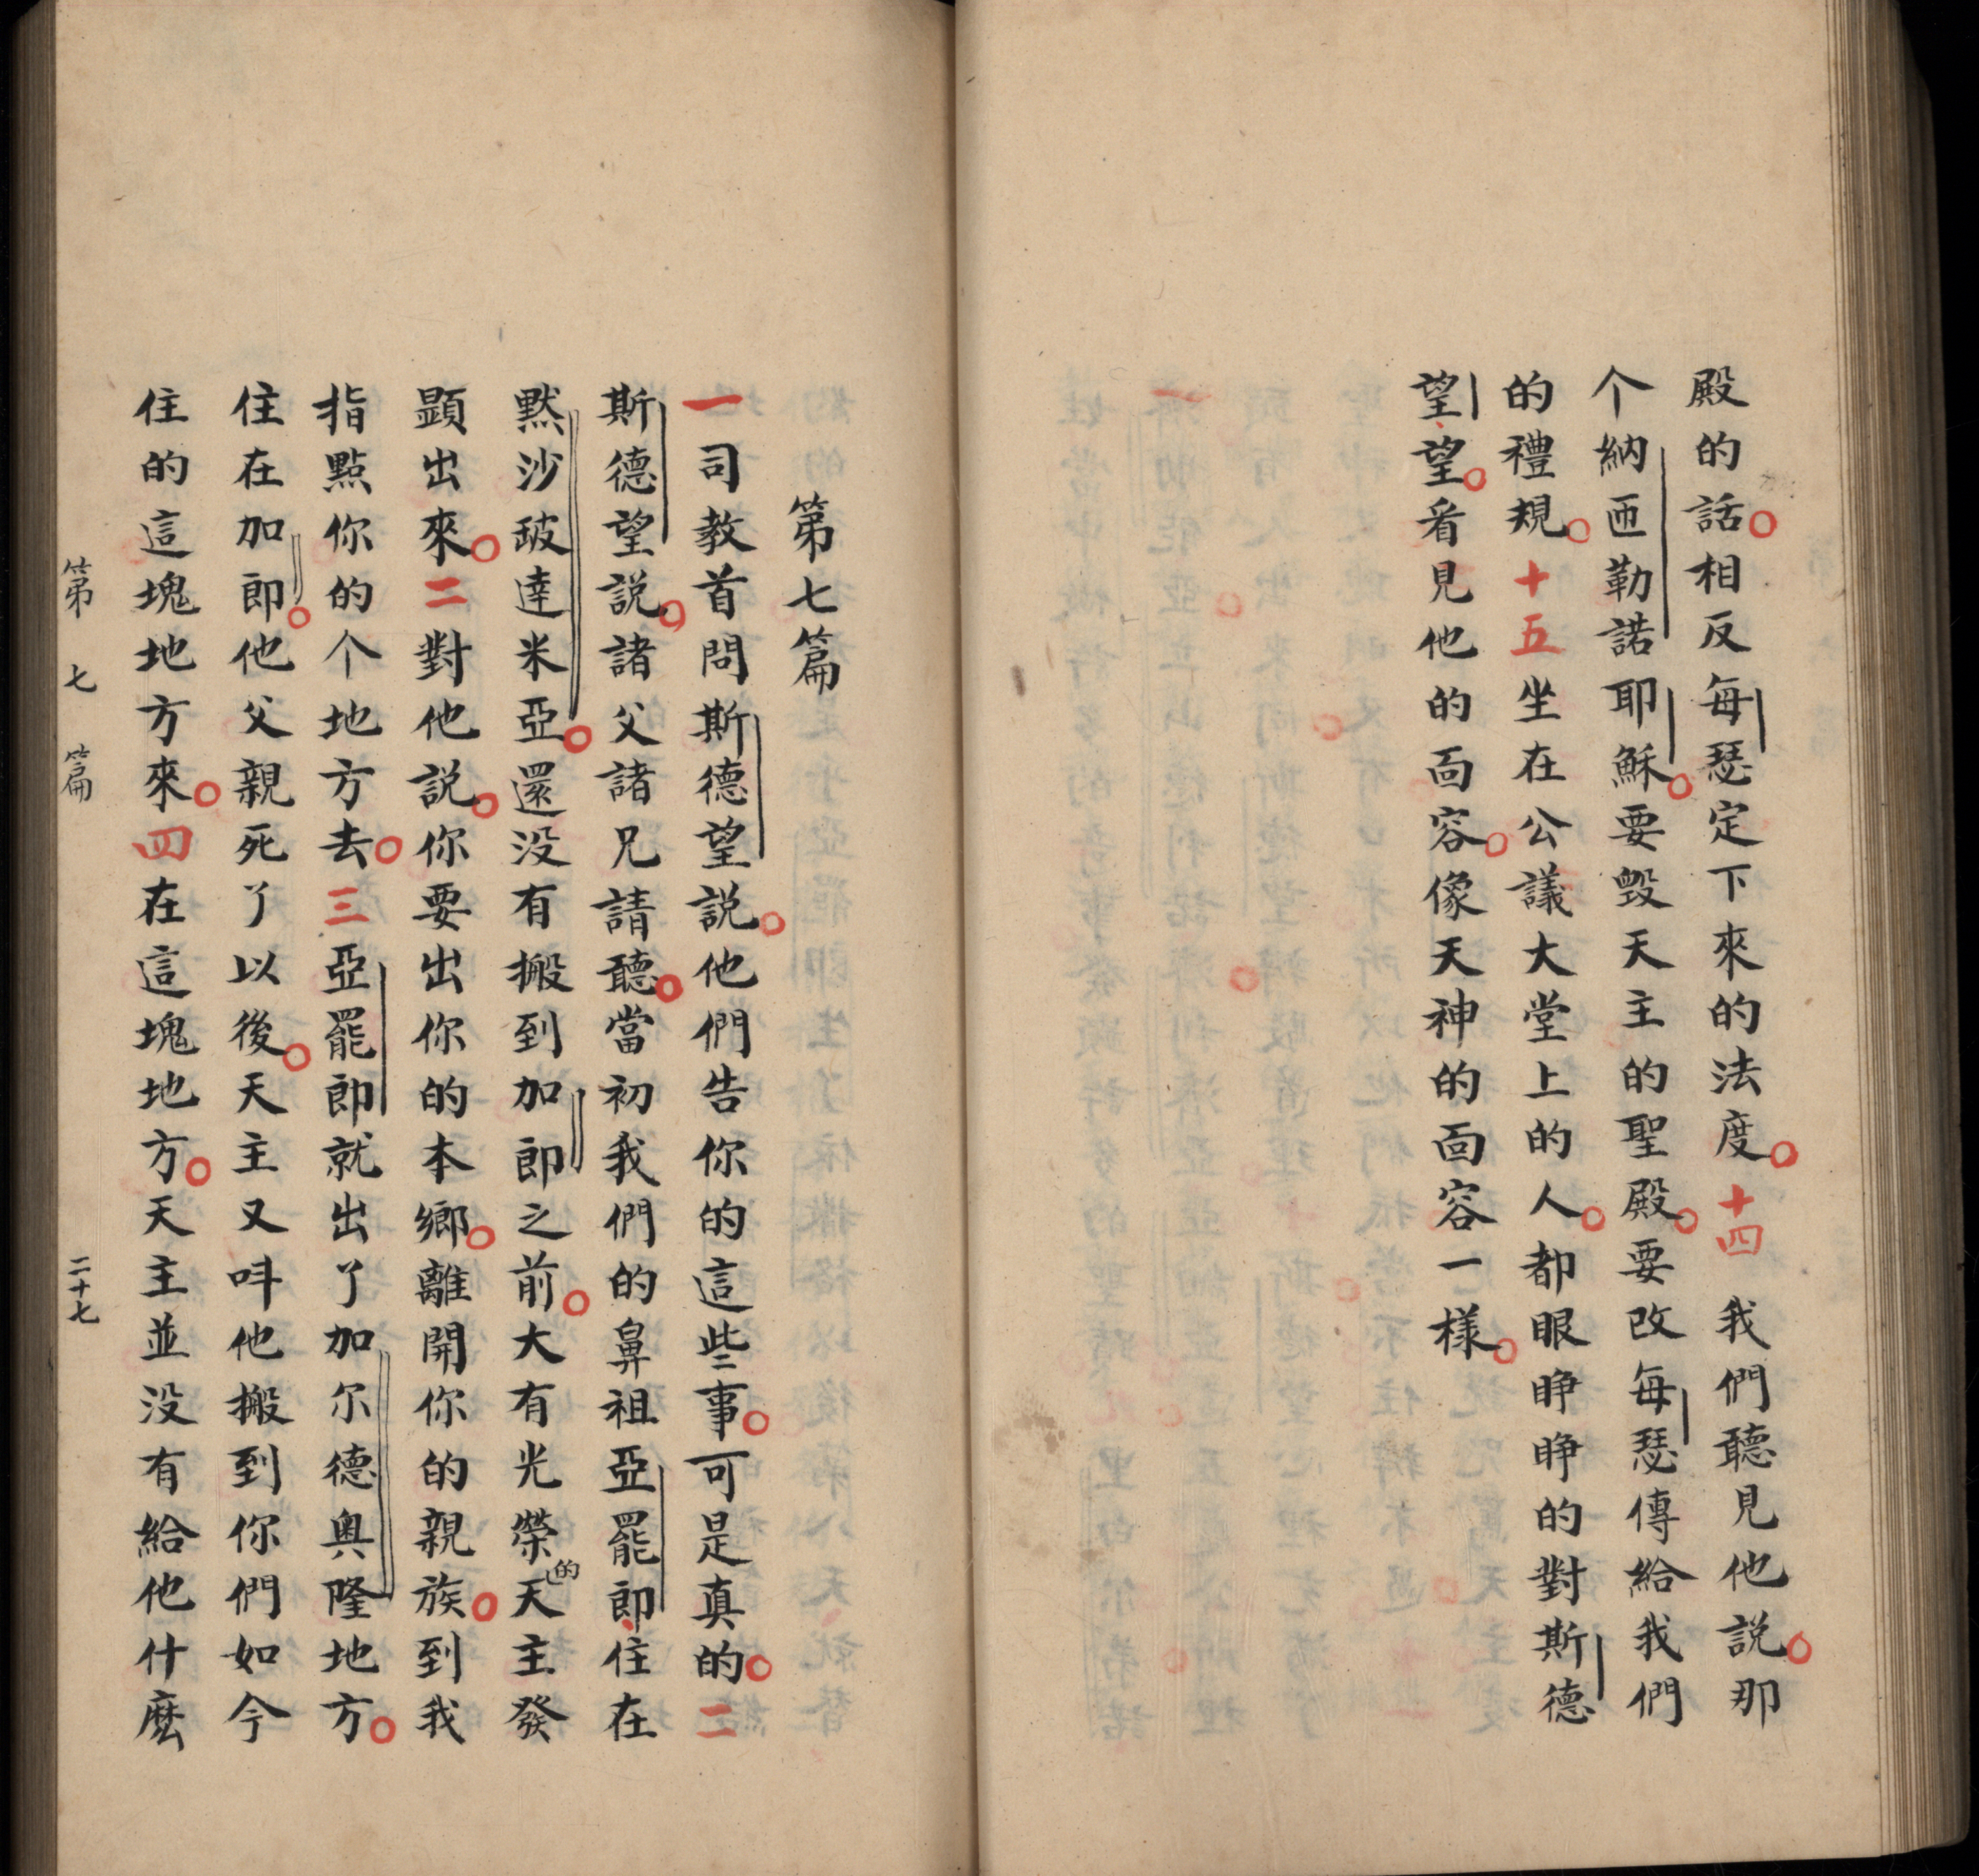 殿的話。相反每瑟定下來的法度。十四我們聽見他説。那
个納匝勒諾耶穌。要毀天主的聖殿。要改每瑟傳給我們
的禮規。十五坐在公議大堂上的人。都眼睁睁的對斯德
望、望。看見他的面容。像天神的面容一樣。
第七篇
一司教首問斯德望説。他們告你的這些事。可是真的。二
斯德望説。諸父諸兄請聽。當初我們的鼻祖亞罷郎、住在
黙沙䟦達米亞。還没有搬到加郎之前。大有光榮的天主發
顕出來。二對他説。你要出你的本鄉。離開你的親族。到我
指㸃你的个地方去。三亞罷郎就出了加尔德奥隆地方。
住在加郎。他父親死了以後。天主又呌他搬到你們如今
住的這塊地方來。四在這塊地方。天主並没有給他什麽
第七篇 二十七